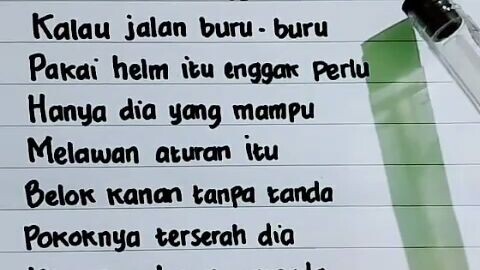 Kalau jalan buru-buru
Pakai helm itu enggak perlu
Hanya dia yang mampu
Melawan aturan itu
Belok kanan tanpa tanda
Pokoknya terserah dia